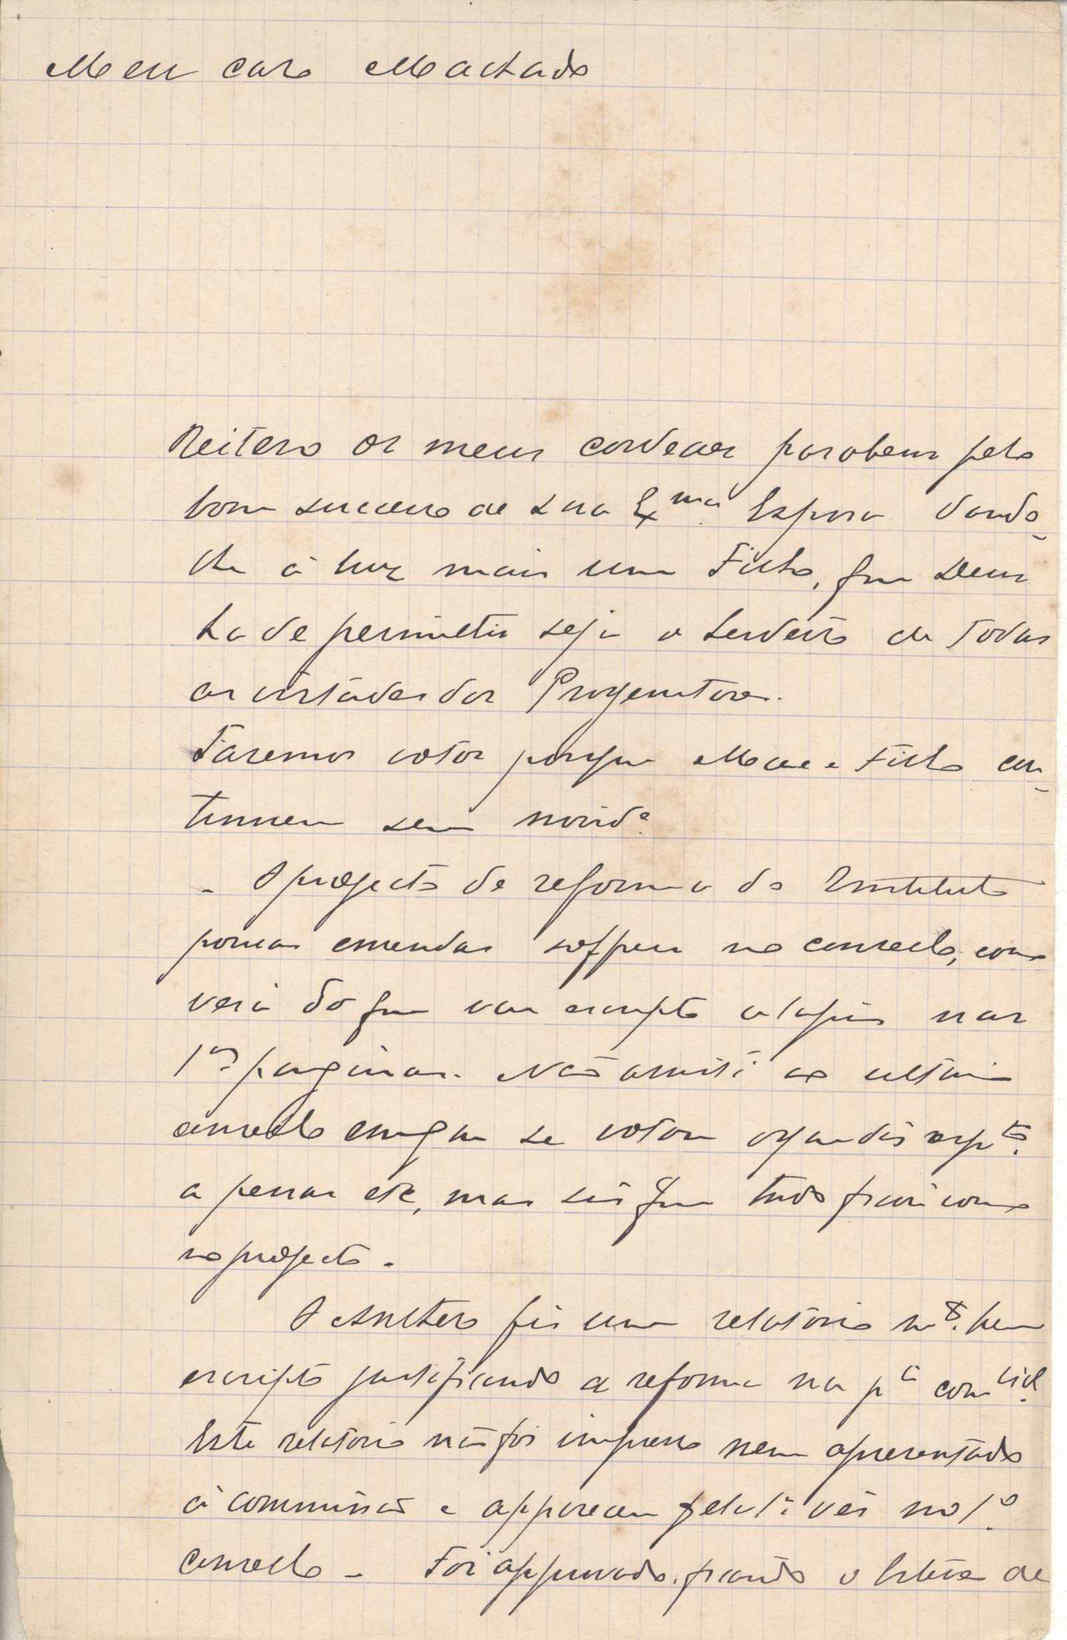 Meu caro Machado
Reitero os meus cordeaes parabens pelo
bom successo de sua Ex.ma Esposa dando-
lhe á luz mais um Filho, que Deus
ha de permittir seja o herdeiro de todas
as virtudes dos Progenitores.
Faremos votos porque Mãe e Filho con-
tinuem sem novid.e
- O projecto de reforma do Instituto
poucas emendas soffreu no conselho, como
verá do que vae escripto a lapis nas
1.as paginas. Não assisti ao ultimo
conselho em que se votou
a penas etc, mas sei que tudo ficou como
no projecto.
O Anthero fez um relatorio m.to bem
escripto justificando a reforma na p.e com.cial
Este relatorio não foi impresso nem apresentado
á commissão e appareceu pela 1.a vês no 1.o
conselho - Foi approvado, ficando o de